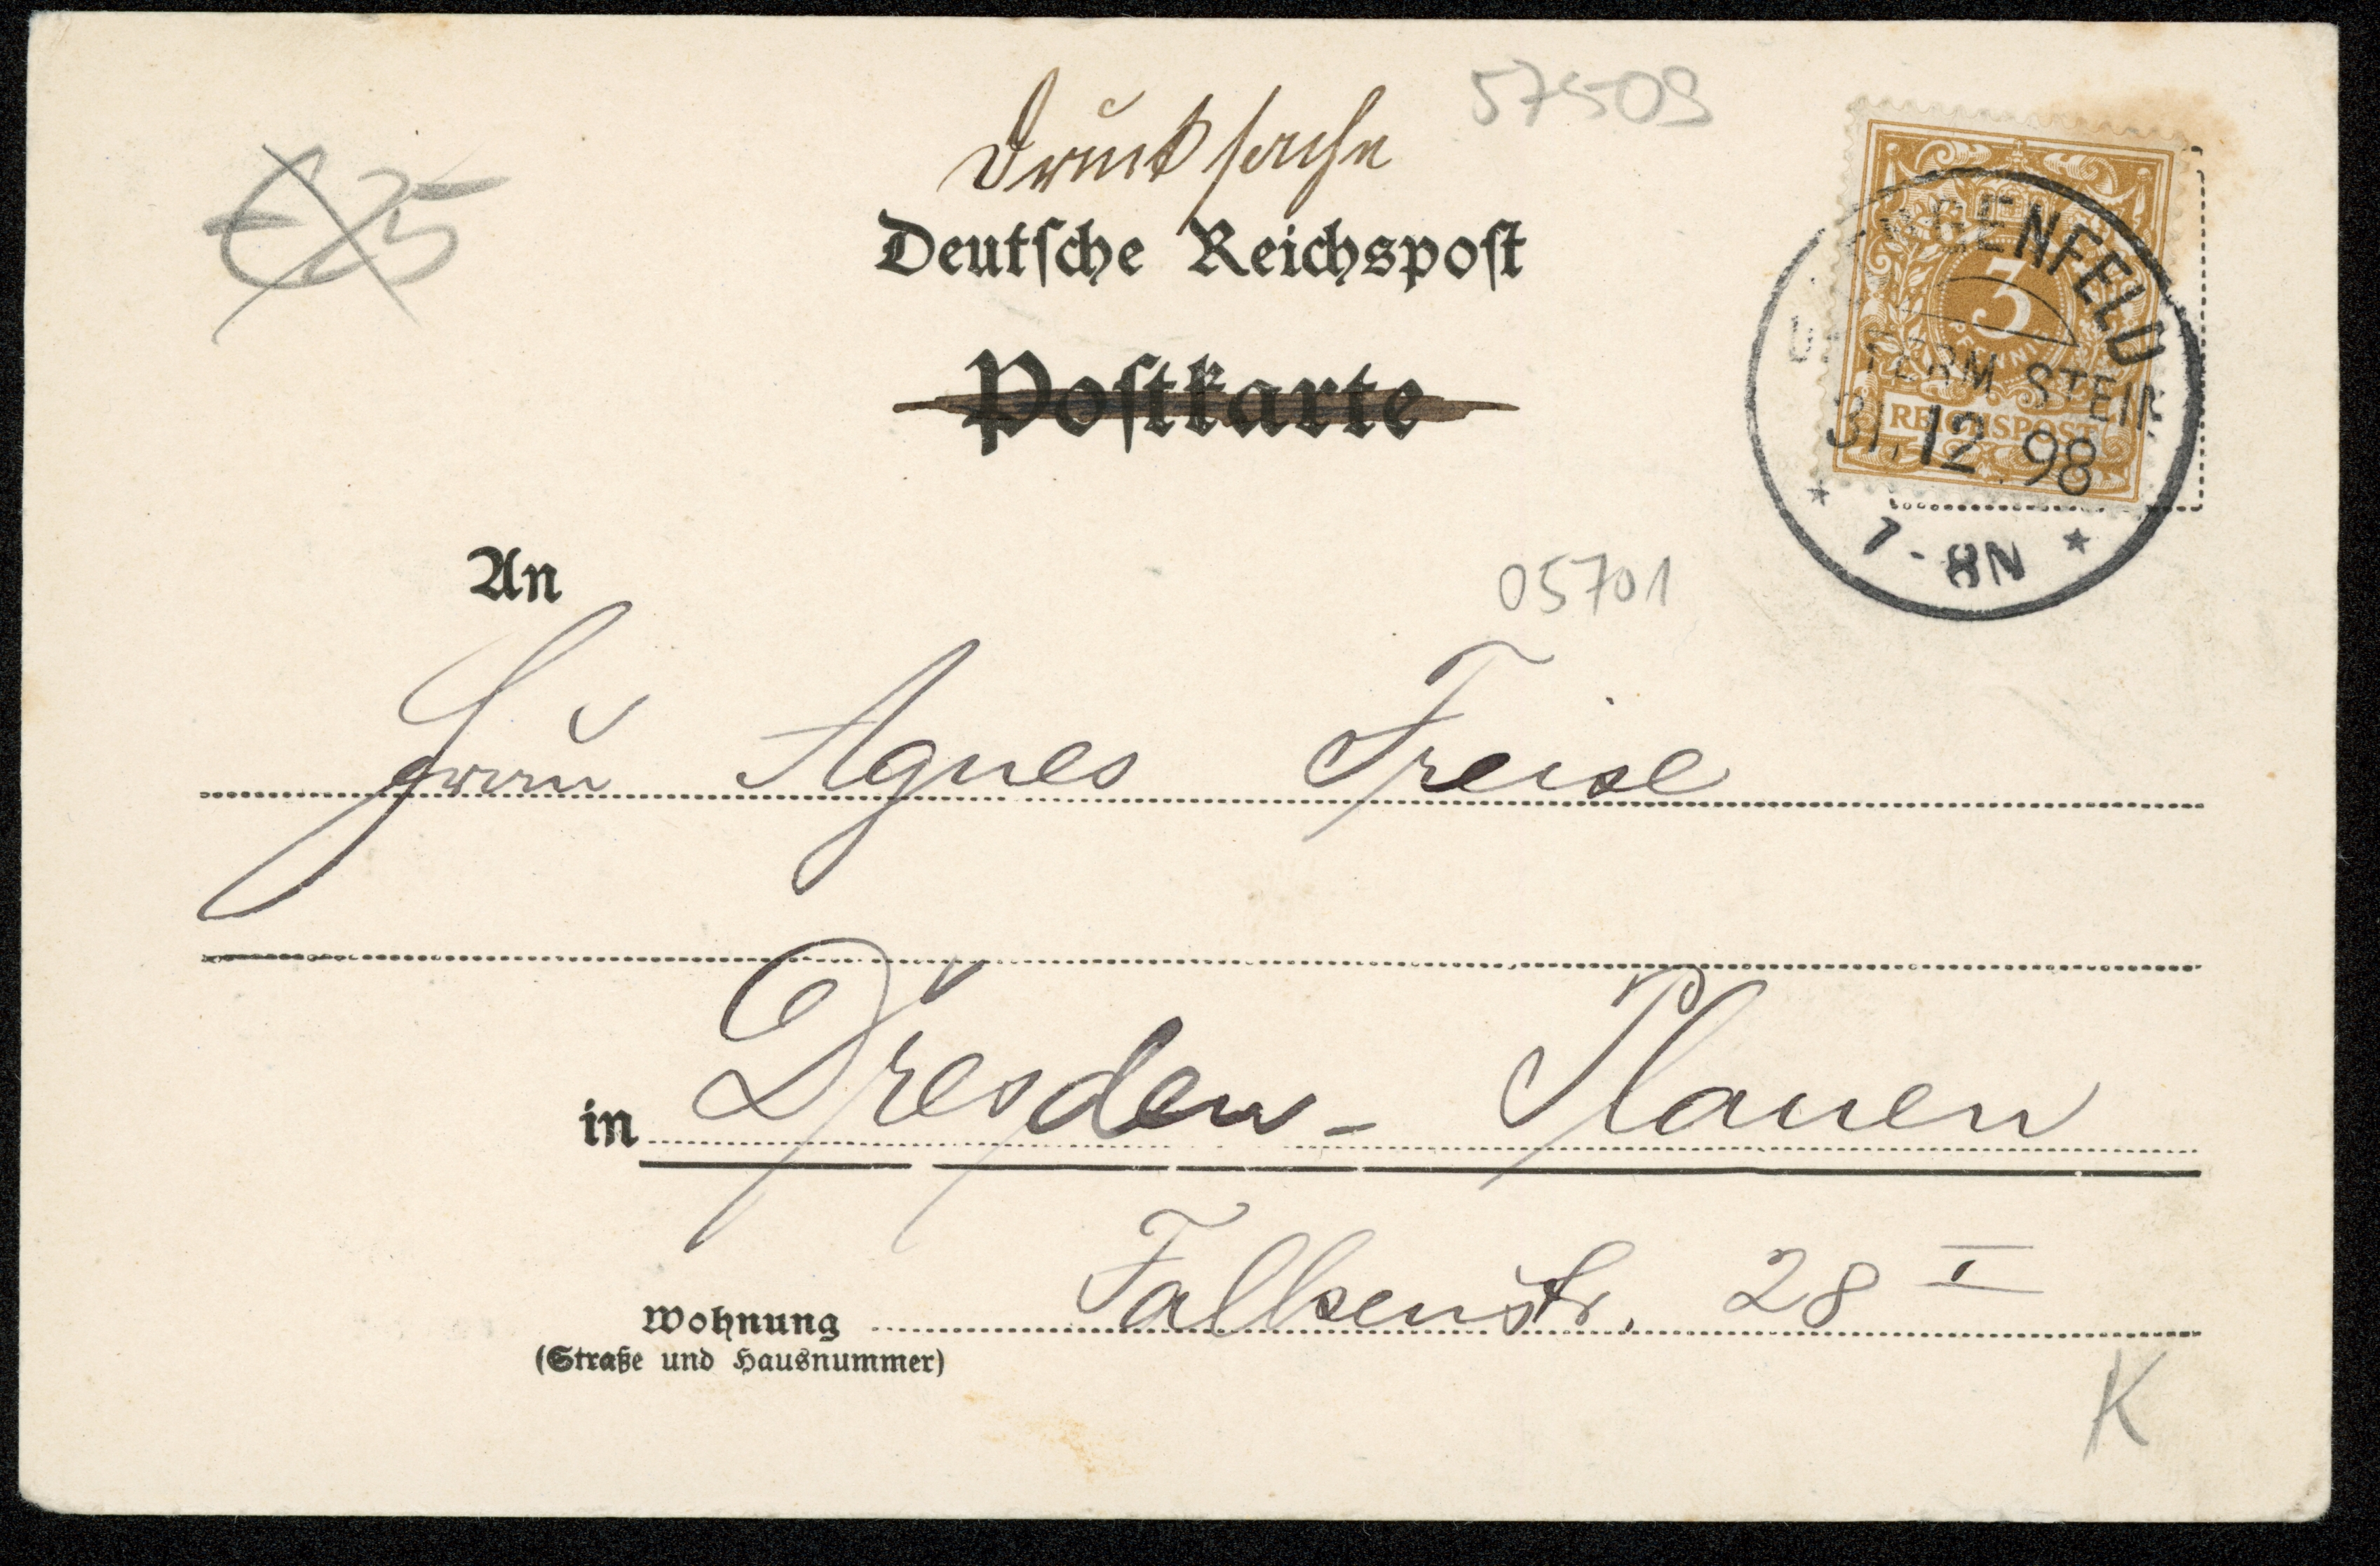 Drucksache
57509
€25
Deutsche Reichspost
Postkarte
LENGENFELD
UNTERM STEIN
31.12.98
7-8N
3
PFENNIG
REICHSPOST
An
05701
Frau Agnes Freise
in Dresden - Plauen
Wohnung Falkenstr. 28 I
(Straße und Hausnummer)
K